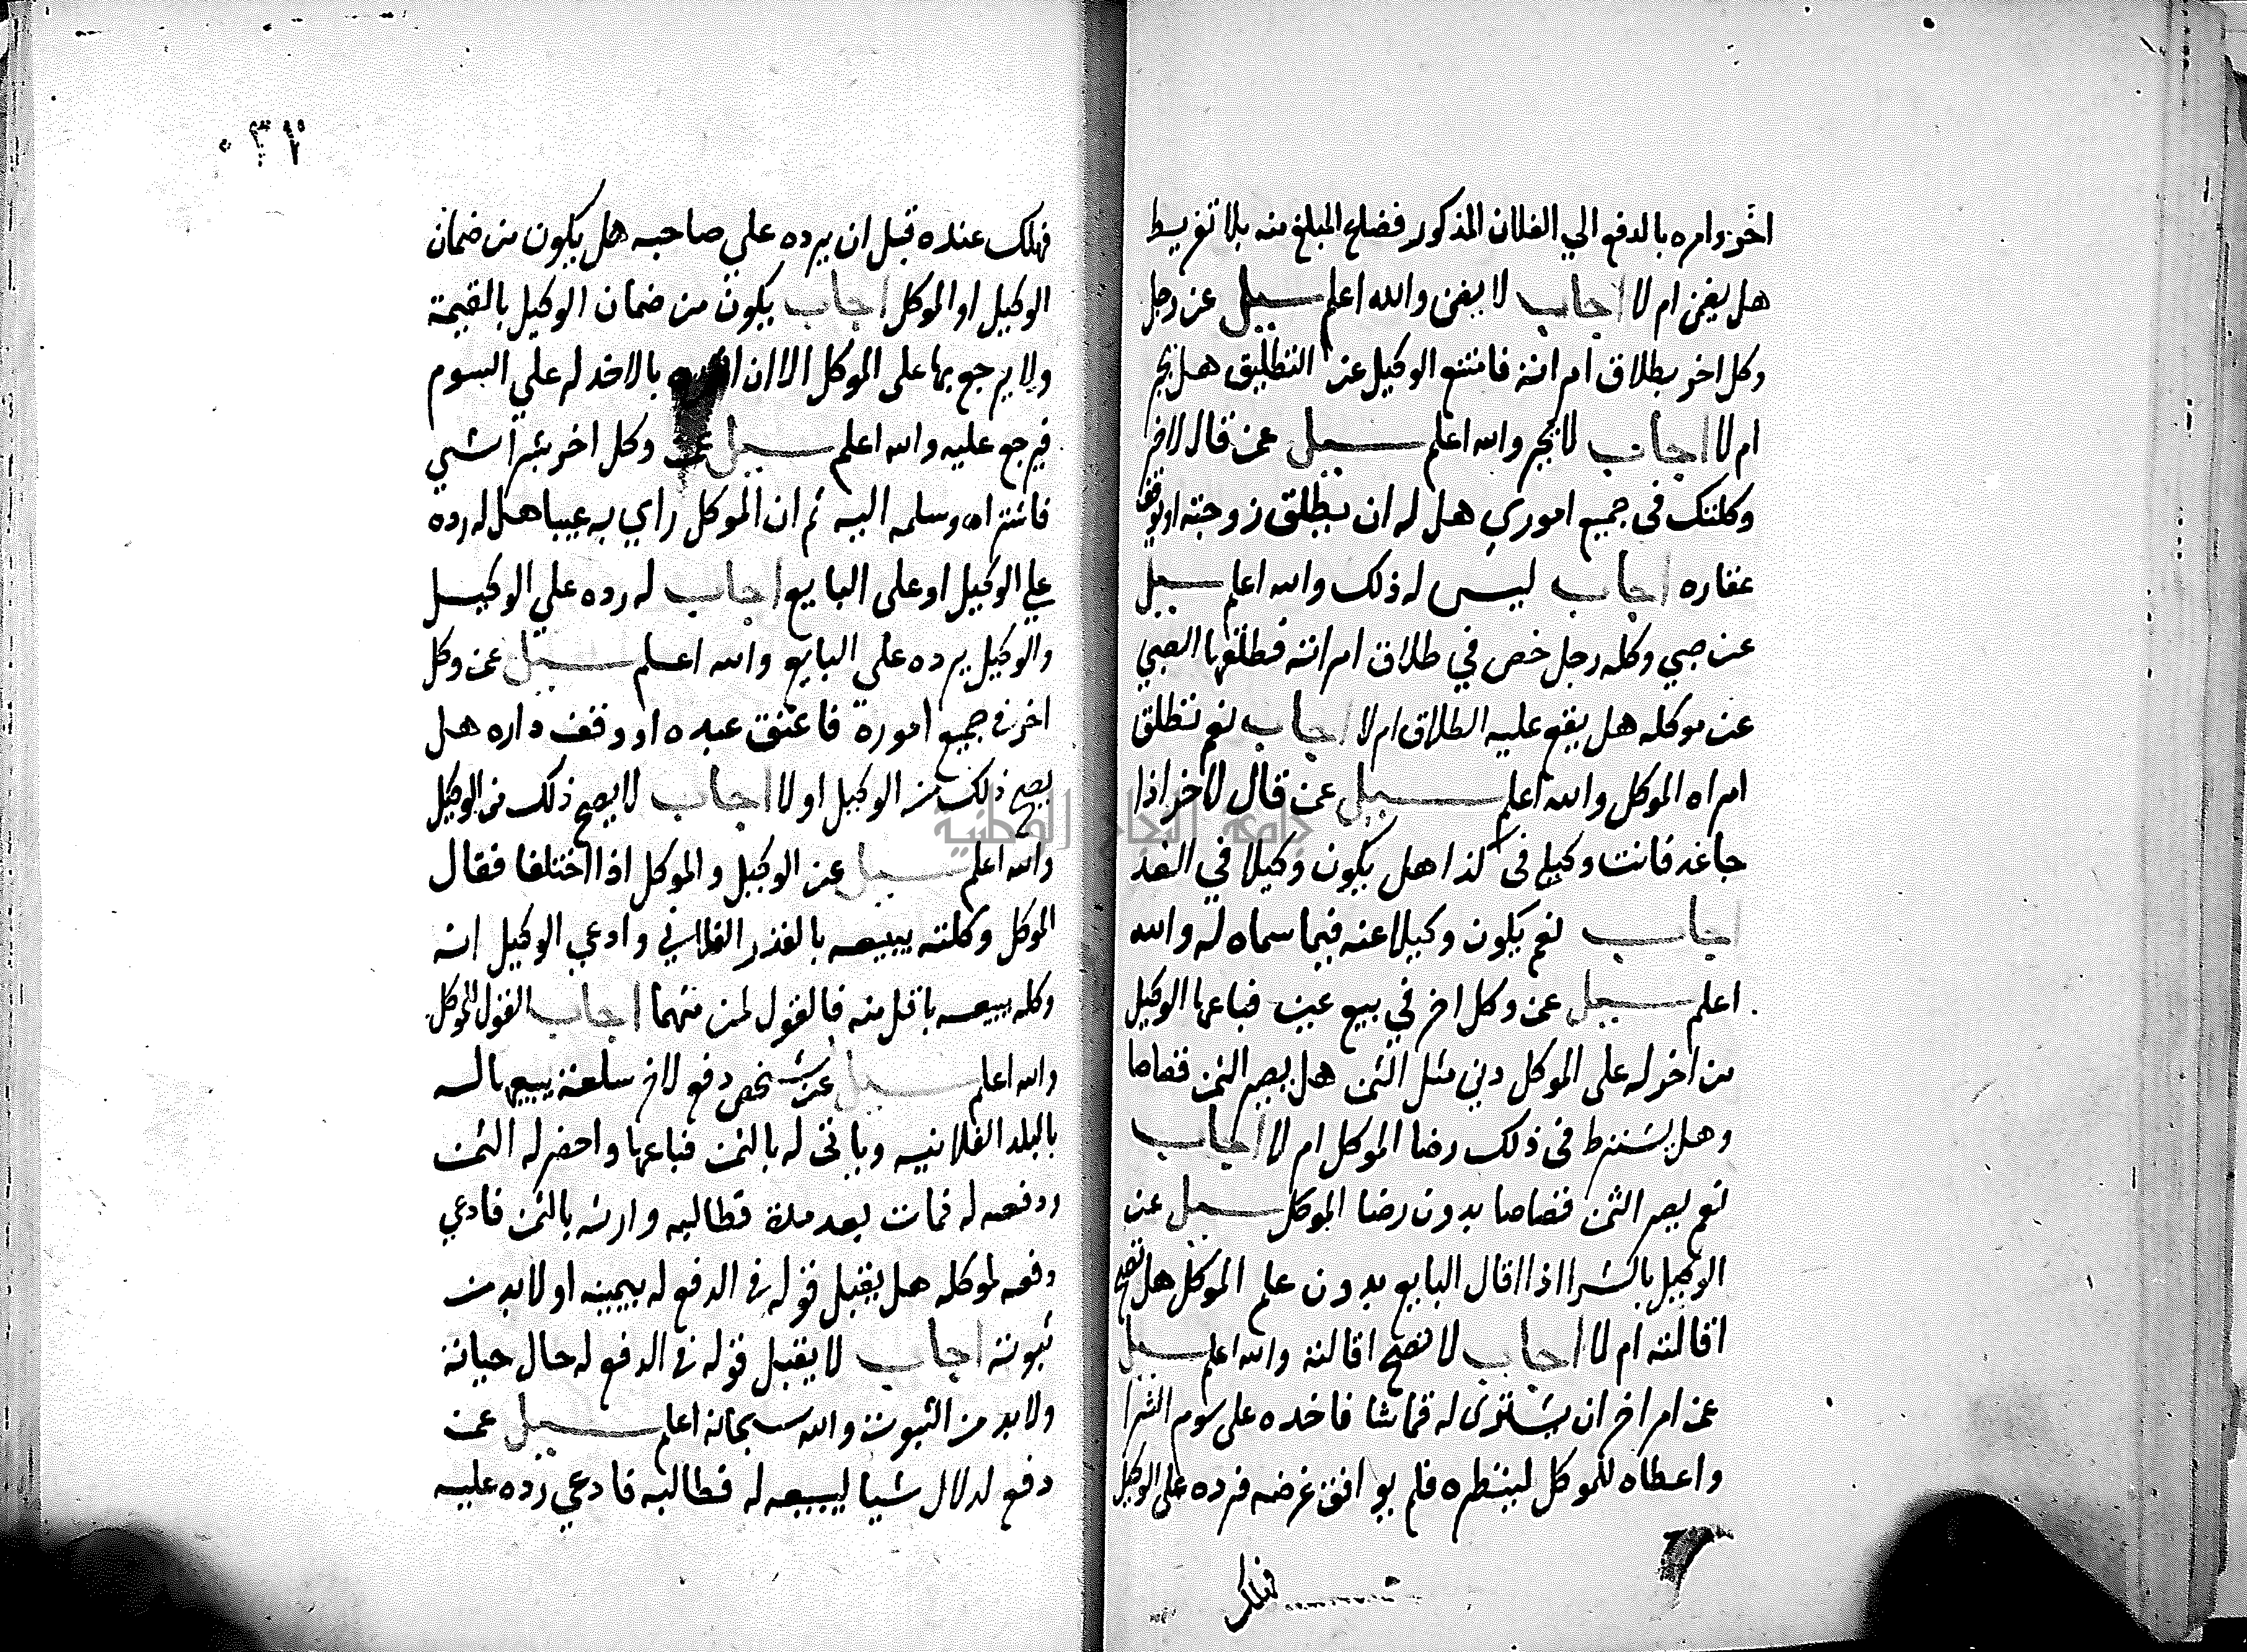 اخر وامره بالدفع الي الفلان المذكور فضاع المبلغ منه بلا تفريط
هل يضمن ام لا اجاب لا يضمن والله اعلم سيل عن رجل
وكل اخر بطلاق امراته فامتنع الوكيل عن التطليق هل يجبر
ام لا اجاب لا يجبر والله اعلم سيل عمن قال لاخر
وكلتك في جميع اموري هل له ان يطلق زوجته او يوقف
عقاره اجاب ليس له ذلك والله اعلم سيل
عن صبي وكله رجل في طلاق امراته فطلقها الصبي
عن موكله هل يقع عليه الطلاق ام لا اجاب نعم تطلق
امراه الموكل والله اعلم سيل عمن قال لاخر اذا
جا غد فانت وكيلي في كذا هل يكون وكيلا في الغد
اجاب نعم يكون وكيلا عنه فيما سماه له والله
اعلم سيل عمن وكل اخر في بيع عين فباعها الوكيل
من اخر له على الموكل دين مثل الثمن هل يصير الثمن قصاصا
وهل يشترط في ذلك رضا الموكل ام لا اجاب
نعم يصير الثمن قصاصا بدون رضا الموكل سيل عن
الوكيل بالشرا اذا اقال البايع بدون علم الموكل هل تصح
اقالته ام لا اجاب لا تصح اقالته والله اعلم سيل
عمن امر اخر ان يشتري له قماشا فاخده على سوم الشرا
واعطاه للموكل لينظره فلم يوافق غرضه فرده على الوكيل
فهلك
٠٣٢
فهلك عنده قبل ان يرده علي صاحبه هل يكون من ضمان
الوكيل او الموكل اجاب يكون من ضمان الوكيل بالقيمة
ولا يرجع بها على الموكل الا ان بالاخد له علي السوم
فيرجع عليه والله اعلم سيل عمن وكل اخر بشرا شي
فاشتراه وسلمه اليه ثم ان الموكل راي به عيبا هل له رده
علي الوكيل او على البايع اجاب له رده علي الوكيل
والوكيل يرده علي البايع والله اعلم سيل عمن وكل
اخر في جميع اموره فاعتق عبده او وقف داره هل
يصح ذلك من الوكيل او لا اجاب لا يصح ذلك من الوكيل
والله اعلم سيل عن الوكيل والموكل اذا اختلفا فقال
الموكل وكلته يبيعه بالقدر الفلاني وادعي الوكيل انه
وكله يبيعه باقل منه فالقول لمن منهما اجاب القول للموكل
والله اعلم سيل عن شخص دفع لاخر سلعة يبيعها له
بالبلد الفلانيه وياتي له بالثمن فباعها واحضر له الثمن
ودفعه له فمات بعد مدة فطالبه وارثه بالثمن فادعي
دفعه لموكله هل يقبل قوله في الدفع له بيمينه او لا بد من
ثبوته اجاب لا يقبل قوله في الدفع له حال حياته
ولا بد من الثبوت والله سبحانه اعلم سيل عمن
دفع لدلال شيا ليبيعه له فطالبه فادعي رده عليه
جامعة النجاح الوطنية